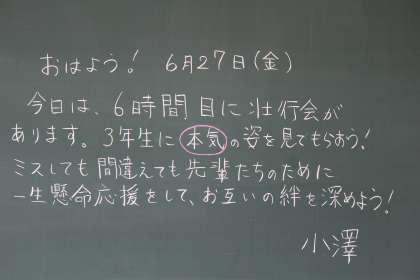 おはよう! 6月27日(金)
今日は、6時間目に壮行会が
あります。3年生に本気の姿を見てもらおう!
ミスしても間違えても先輩たちのために
一生懸命応援をして、お互いの絆を深めよう!
小澤